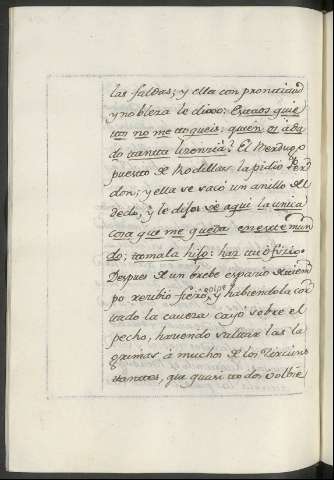 las faldas; y ella con prontitud
y nobleza le dixo: Estaos quie
tos no me toqueis: quien os à da
do tanta licencia? El Verdugo
puesto de Rodillas la pidio Per
don; y ella se sacó un anillo del
dedo, y le dijo: ve aqui la unica
cosa que me queda en este mun
do; tomala hijo: haz tu oficio.
Despues de un brebe espacio de tiem
po recibio fiero golpe, y habiendola cor
tado la caveza cayó sobre el
pecho, haciendo saltar las la
grimas à muchos de los Circuns
tantes, que quasi todos volbie